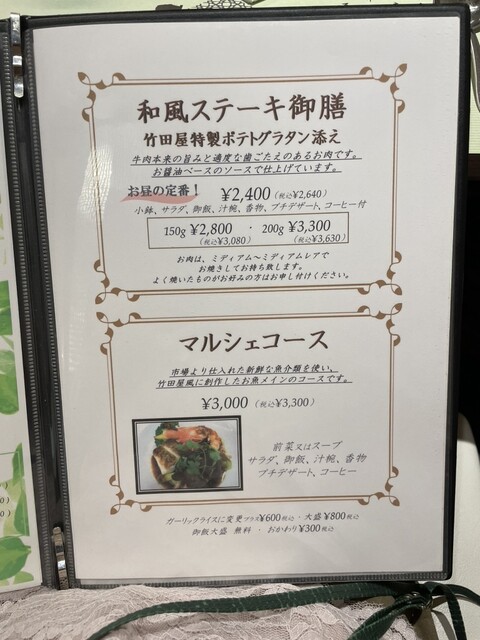 和風ステーキ御膳
竹田屋特製ポテトグラタン添え
牛肉本来の旨みと適度な歯ごたえのあるお肉です。
お醤油ベースのソースで仕上げています。
お昼の定番! ¥2,400(税込¥2,640)
小鉢、サラダ、御飯、汁椀、香物、プチデザート、コーヒー付
150g ¥2,800 ・ 200g ¥3,300
(税込¥3,080) (税込¥3,630)
お肉は、ミディアム〜ミディアムレアで
お焼きしてお持ち致します。
よく焼いたものがお好みの方はお申し付けください。
マルシェコース
市場より仕入れた新鮮な魚介類を使い、
竹田屋風に創作したお魚メインのコースです。
¥3,000(税込¥3,300)
前菜又はスープ
サラダ、御飯、汁椀、香物
プチデザート、コーヒー
ガーリックライスに変更プラス¥600税込・大盛¥800税込
御飯大盛 無料 ・ おかわり¥300税込